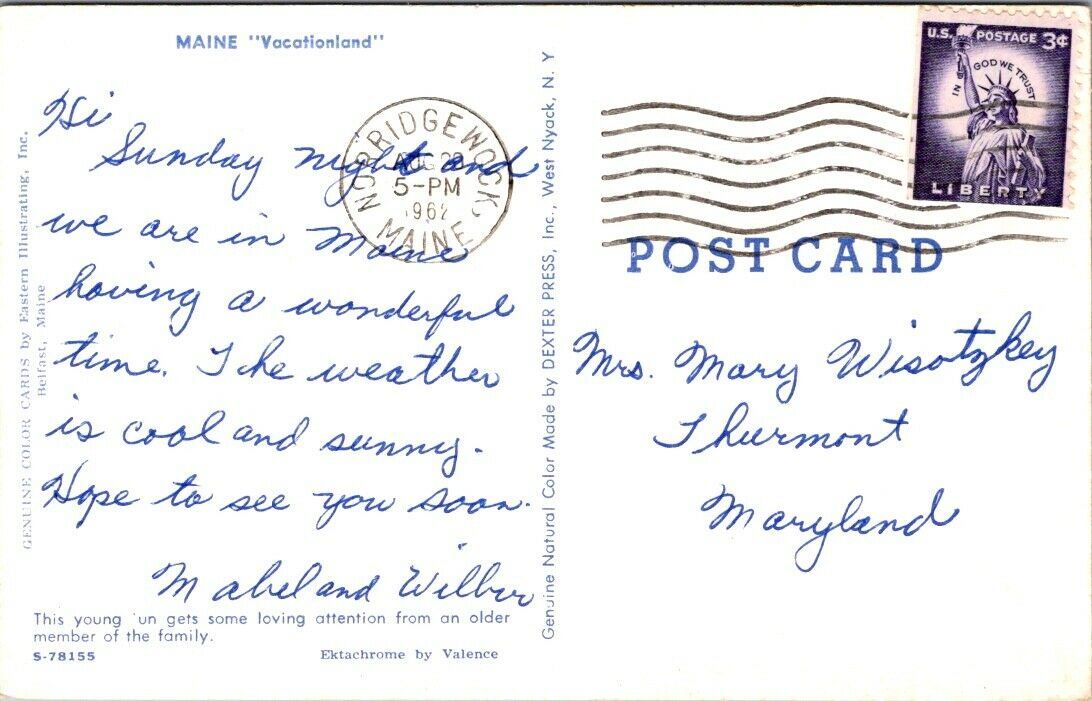 MAINE "Vacationland"
Hi
Sunday night and
we are in Maine
having a wonderful
time. The weather
is cool and sunny.
Hope to see you soon.
Mabel and Wilbur
This young 'un gets some loving attention from an older
member of the family.
S-78155
Ektachrome by Valence
GENUINE COLOR CARDS by Eastern Illustrating, Inc.
Belfast, Maine
Genuine Natural Color Made by DEXTER PRESS, Inc., West Nyack, N. Y
NORRIDGEWOCK,
AUG
5-PM
1962
MAINE
U.S. POSTAGE 3¢
IN GOD WE TRUST
LIBERTY
POST CARD
Mrs. Mary Wisotzkey
Thurmont
Maryland